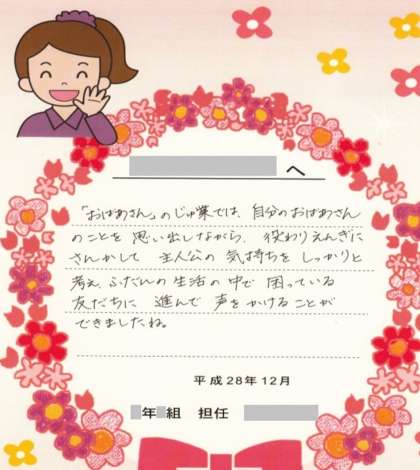 へ
「おばあさん」のじゅ業では、自分のおばあさん
のことを思い出しながら、役わりえんぎに
さんかして 主人公の気持ちをしっかりと
考え、ふだんの生活の中で困っている
友だちに進んで声をかけることが
できましたね。
平成28年12月
年 組 担任